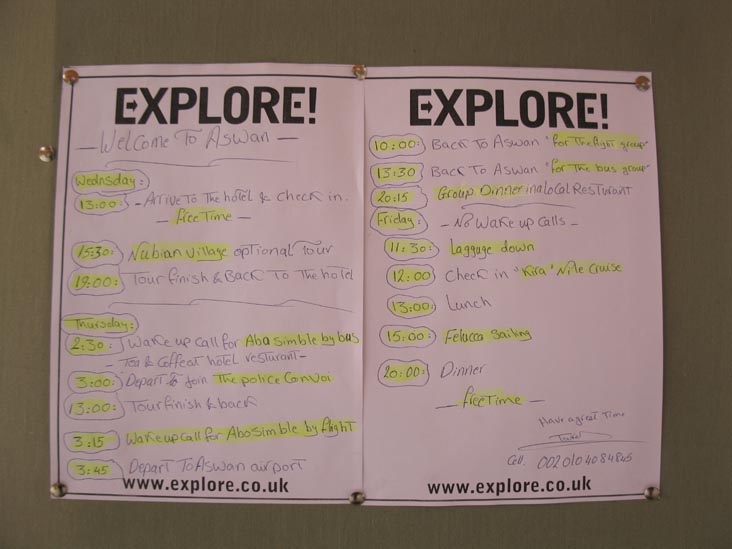 EXPLORE!
- Welcome To Aswan -
Wednsday:
13:00: - Arrive To the hotel & check in.
- free Time -
15:30: Nubian Village optional Tour
19:00: Tour finish & Back To The hotel
Thursday:
2:30: Wake up call for Aba simble by bus
- Tea & Coffeat hotel resturant -
3:00: Depart to Join The police Convoi
13:00: Tour finish & back
3:15 Wake up call for Abo Simble by flight
3:45 Depart To Aswan airport
www.explore.co.uk
EXPLORE!
10:00: Back To Aswan "for The flight group"
13:30 Back To Aswan "for The bus group"
20:15 Group Dinner in a Local Resturant
Friday: - No Wake up calls -
11:30: Laggage down
12:00 Check in "Kira" Nile Cruise
13:00: Lunch
15:00: Felucca Sailing
20:00: Dinner
- free Time -
Have a great Time
Cell. 002 010 40 84 845
www.explore.co.uk